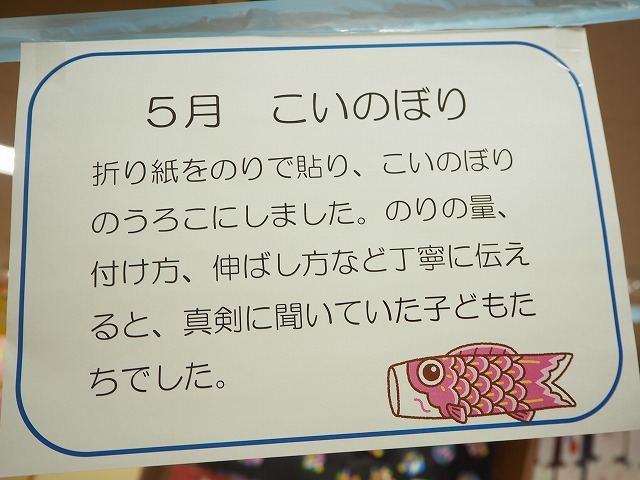 ５月　こいのぼり
折り紙をのりで貼り、こいのぼり
のうろこにしました。のりの量、
付け方、伸ばし方など丁寧に伝え
ると、真剣に聞いていた子どもた
ちでした。